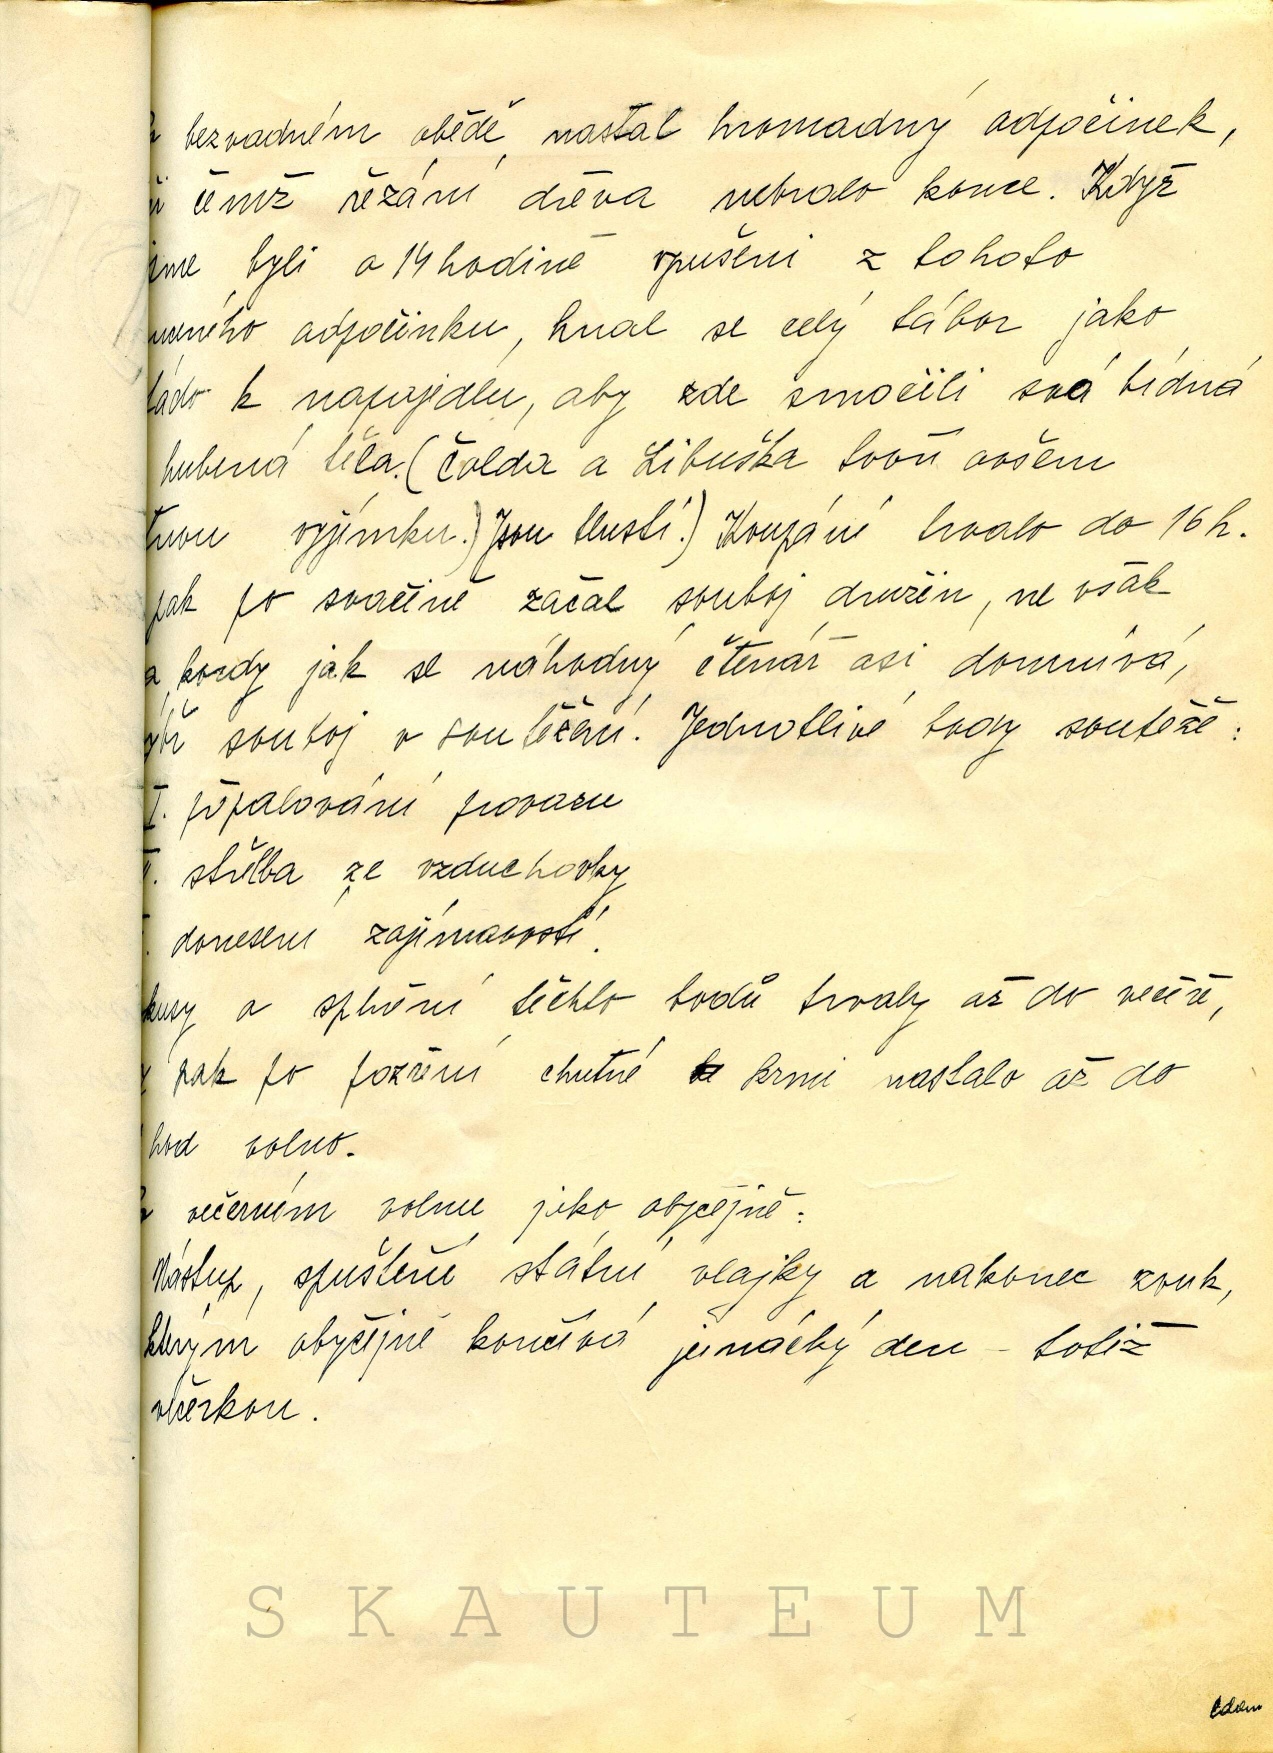 bezvadném obědě nastal hromadný odpočinek,
čemž řezání dřeva nebralo konce. Když
jsme byli o 14 hodině vpušěni z tohoto
odpočinku, hnal se celý tábor jako
k napajedlu, aby zde smočili svá bídná
hubená těla. (Čolda a Libuška tvoří ovšem
vyjímku.) Jsou tlustí.) Koupání trvalo do 16 h.
pak po svačině začal souboj družin, ne však
kordy jak se náhodný čtenář asi domnívá,
souboj v soutěžení. Jednotlivé body soutěže:
I. přepalování provazu
střelba ze vzduchovky
donesení zajímavostí.
a splnění těchto bodů trvaly až do večeře,
pak po pozření chutné krmi nastalo až do
hod volno.
večerním volnu jako obyčejně:
Nástup, spuštění státní vlajky a nakonec zvuk,
kterým obyčejně končívá junácký den - totiž
večerkou.
SKAUTEUM